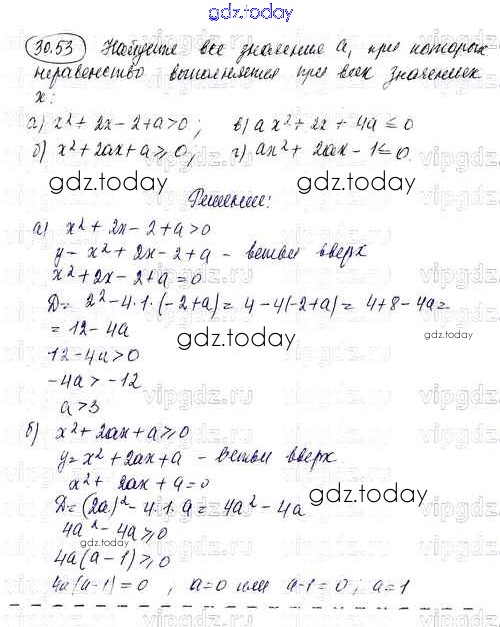 gdz.today
30.53 Найдите все значения a, при которых
неравенство выполняется при всех значениях
x:
а) x² + 2x - 2 + a > 0; в) a x² + 2x + 4a ≤ 0
б) x² + 2ax + a ≥ 0; г) ax² + 2ax - 1 ≤ 0.
gdz.today gdz.today
Решение:
а) x² + 2x - 2 + a > 0
y = x² + 2x - 2 + a - ветви вверх
x² + 2x - 2 + a = 0
D = 2² - 4·1·(-2+a) = 4 - 4(-2+a) = 4 + 8 - 4a =
= 12 - 4a
gdz.today
12 - 4a > 0
-4a > -12
a > 3
б) x² + 2ax + a ≥ 0
y = x² + 2ax + a - ветви вверх
x² + 2ax + a = 0
D = (2a)² - 4·1·a = 4a² - 4a
gdz.today
4a² - 4a ≥ 0
gdz.today
4a(a-1) ≥ 0
4a(a-1) = 0 ; a=0 или a-1=0; a=1